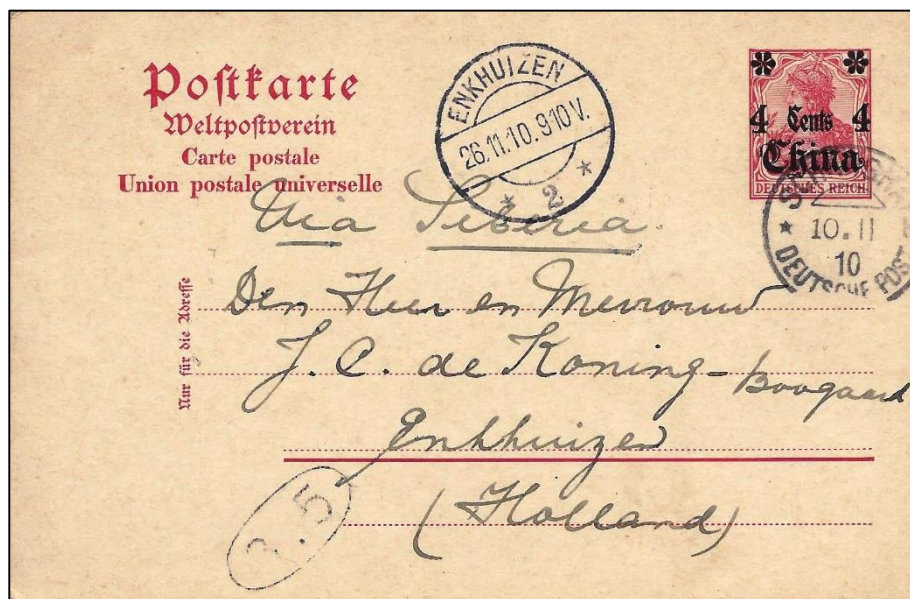 Postkarte
Weltpostverein
Carte postale
Union postale universelle
ENKHUIZEN
26.11.10.9-10V.
2
4 Cents 4
China
DEUTSCHES REICH
10.11
10
DEUTSCHE POST
Via Siberia.
Nur für die Adresse
Den Heer en Mevrouw
J. C. de Koning-Boogaard
Enkhuizen
(Holland)
3.5